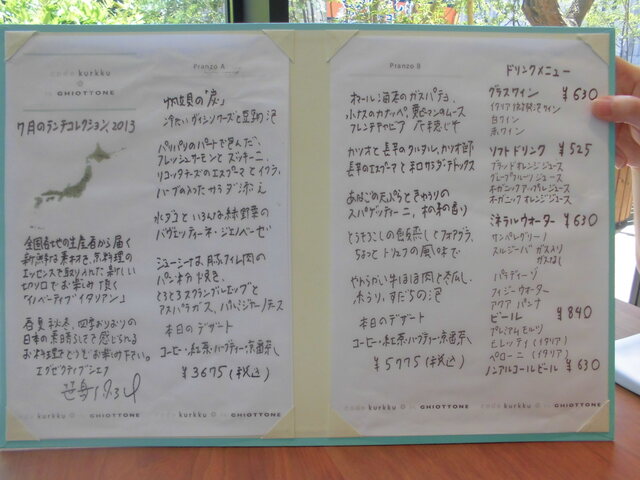 code kurkku
by GHIOTTONE
7月のランチコレクション、2013
全国各地の生産者から届く
新鮮な素材を、京料理の
エッセンスを取り入れた新しい
切り口でお楽しみ頂く
"イノベーティブイタリアン"
春夏秋冬、四季おりおりの
日本の素晴らしさを感じられる
お料理をどうぞお楽しみ下さい。
エグゼクティブシェフ
code kurkku by GHIOTTONE
Pranzo A
冷たいヴィシソワーズと
パリパリのパートで包んだ、
フレッシュサーモンとズッキーニ、
リコッタチーズのエスプーマとイクラ、
ハーブの入ったサラダ添え
水ダコといろんな緑野菜の
バヴェッティーネ・ジェノベーゼ
ジューシーな、豚フィレ肉の
パン粉力焼き、
とろとろスクランブルエッグと
アスパラガス、パルミジャーノチーズ
本日のデザート
コーヒー・紅茶・ハーブティー・京番茶
¥3675(税込)
code kurkku by GHIOTTONE
Pranzo B
オマール海老のガスパチョ、
小ナスのカナッペ、
フレンチキャビア
カツオと長芋のタルタル、カツオ節
長芋のエスプーマと辛口サラダ
あなごの天ぷらときゅうりの
スパゲッティーニ、木の芽の香り
とうもろこしの
ちょっとトリュフの風味で
やわらかい牛ほほ肉と冬瓜、
すだちの泡
本日のデザート
コーヒー・紅茶・ハーブティー・京番茶
¥5775(税込)
code kurkku by GHIOTTONE
ドリンクメニュー
グラスワイン ¥630
イタリア 泡ワイン
白ワイン
赤ワイン
ソフトドリンク ¥525
ブラッドオレンジジュース
グレープフルーツジュース
オーガニックアップルジュース
オーガニックオレンジジュース
ミネラルウォーター ¥630
サンペレグリーノ
スルジーバ ガス入り
ガスなし
パラディーゾ
フィジーウォーター
アクアパンナ
ビール ¥840
プレミアムモルツ
モレッティ(イタリア)
ペローニ(イタリア)
ノンアルコールビール ¥630
code kurkku by GHIOTTONE